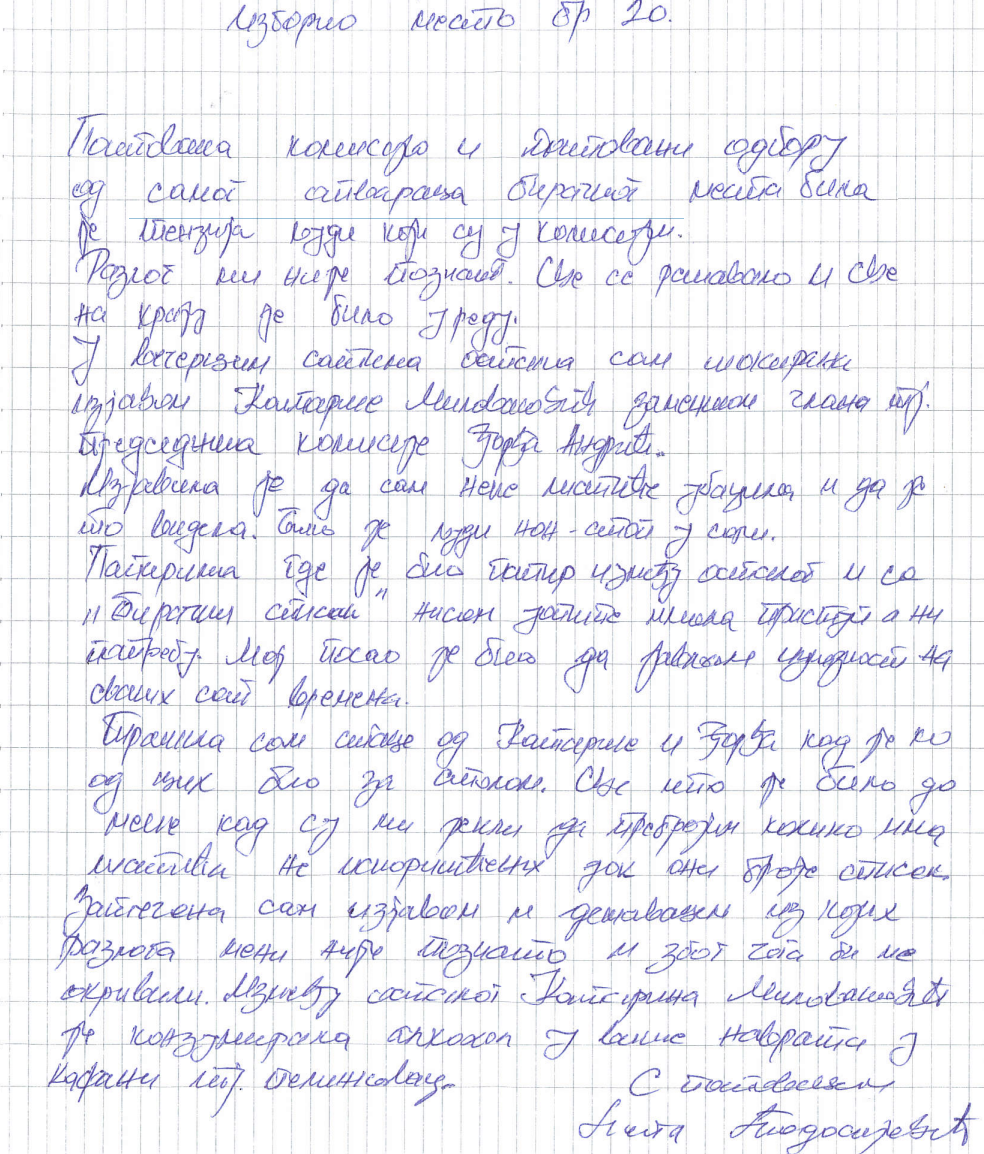 Изборно место бр 20.
Поштована комисијо и поштовани одбору
од самог отварања бирачког места била
је тензија људи који су у комисији.
Разлог ми није познат. Све се решавало и све
на крају је било у реду.
У вечерњим сатима остала сам шокирана
изјавом Катарине Миловановић замеником члана тј.
председника комисије Ђорђа Андрић.
Изјавила је да сам неке листиће убацила и да је
то видела. Било је људи нон-стоп у сали.
Папирима где је био папир између осталог и са
"Бирачки списак" нисам уопште имала приступ а ни
потребу. Мој посао је био да јављам излазност на
сваких сат времена.
Тражила сам стално од Катарине и Ђорђа кад је ко
од њих био за столом. Све што је било до
мене кад су ми рекли да пребројим колико има
листића не искоришћених док они броје списак.
Затечена сам изјавом и дешавањем из којих
разлога мени није познато и због чега би ме
окривили. Између осталог Катарина Миловановић
је конзумирала алкохол у више наврата у
кафани
С поштовањем